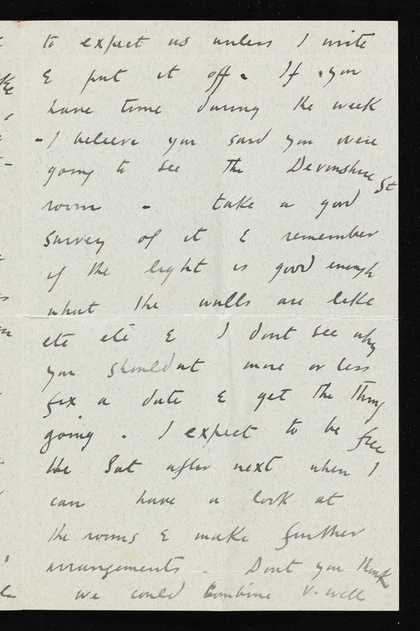 to expect us unless I write
& put it off. If you
have time during the week
- I believe you said you were
going to see the Devonshire St
room - take a good
survey of it & remember
if the light is good enough
what the walls are like
etc etc & I dont see why
you shouldnt more or less
fix a date & get the thing
going. I expect to be free
the Sat after next when I
can have a look at
the rooms & make further
arrangements. Dont you think
we could combine v. well